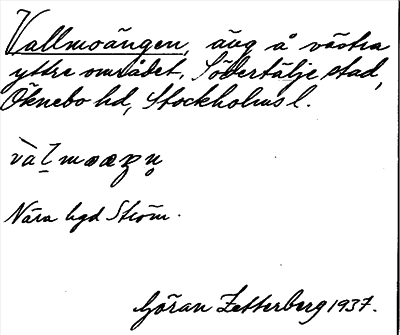 Vallmoängen, äng å västra
yttre området, Södertälje stad,
Öknebo hd, Stockholms l.
Nära lgd Ström.
Göran Zetterberg 1937.